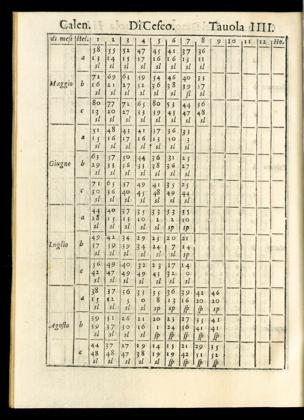 Calen. Di Cesco. Tavola IIII.
di mesi stel. 1 2 3 4 5 6 7 8 9 10 11 12 Ho.
58 55 52 47 45 41 37 36
a 13 14 15 17 16 16 13 11
sl sl sl sl sl sl sl sl
72 69 65 59 54 46 40 33
Maggio b 16 21 27 12 36 38 39 17
sl sl sl sl sl sl sl
80 77 72 65 80 53 44 36
c 13 20 27 33 59 45 47 48
sl sl sl sl sl sl sl sl
51 48 43 41 37 36 33
a 15 16 17 16 13 10 3
sl sl sl sl sl sl sl
63 57 50 44 36 31 25
Giugno b 29 33 36 33 38 36 27
sl sl sl sl sl sl sl
71 65 57 49 41 35 25
c 30 36 40 45 48 49 44
sl sl sl sl sl sl sl
44 40 37 35 33 33 35
a 18 15 13 10 2 2 10
sl sl sl sl sl sp sp
49 42 34 29 25 20 21
Luglio b 57 59 59 34 24 7 14
sl sl sl sl sl sl sp
56 49 40 32 23 17 14
c 42 47 49 49 43 32 0
sl sl sl sl sl sl
38 37 36 33 35 36 39 42 46
a 15 12 5 0 8 13 16 20 20
sl sl sl sp sp sp sp sp
39 31 26 21 20 23 27 35 41
Agosto b 59 37 30 16 1 24 36 41 41
sl sl sl sl sl sp sp sp sp
44 37 17 19 14 15 21 29 35
c 48 48 47 38 19 19 42 51 52
sl sl sl sl sl sp sp sp sp